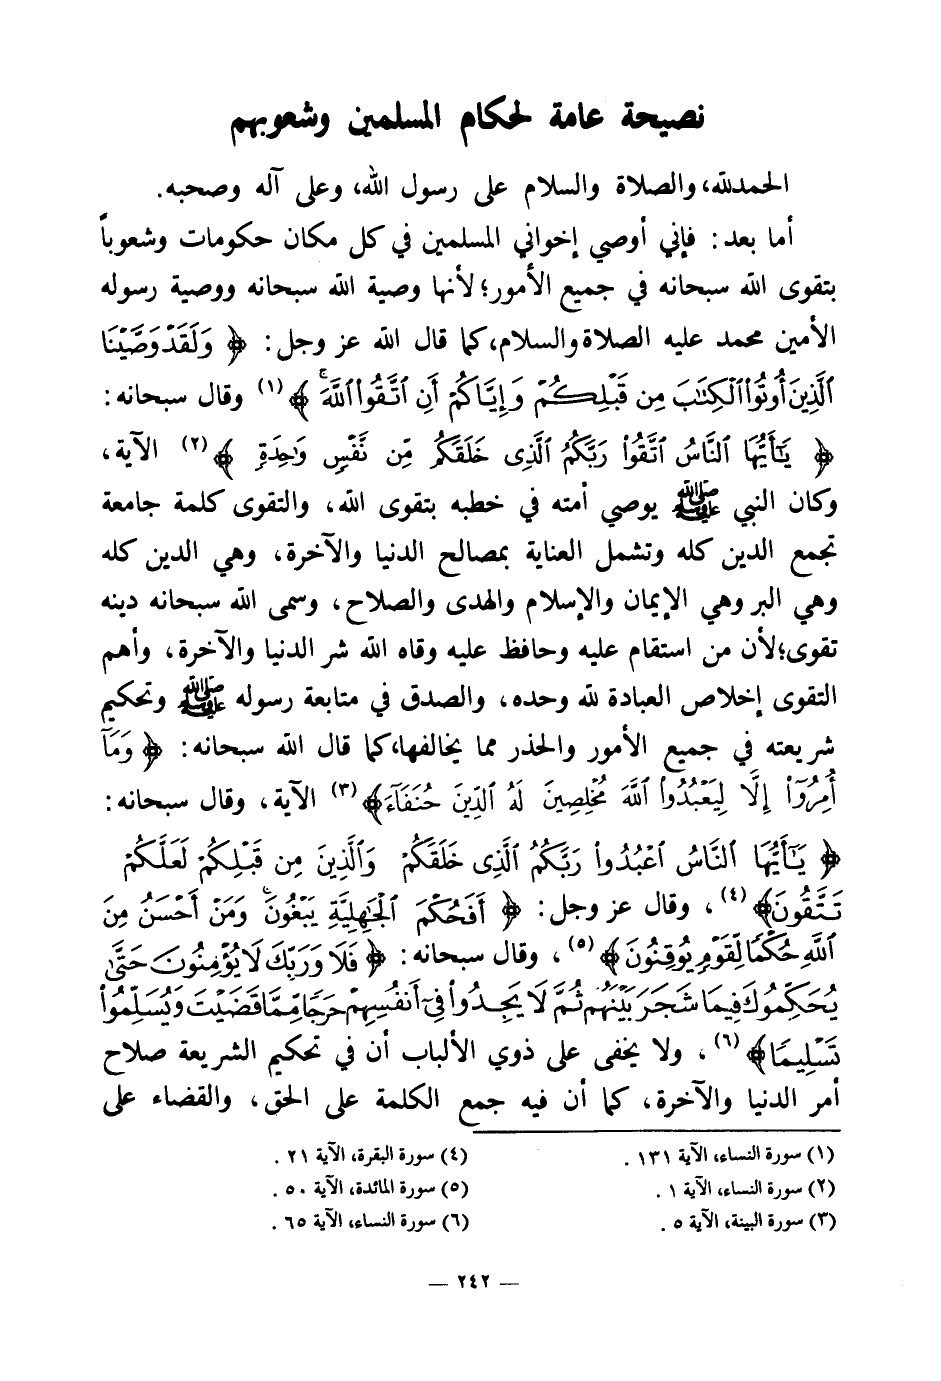 نصيحة عامة لحكام المسلمين وشعوبهم
الحمدلله، والصلاة والسلام على رسول الله، وعلى آله وصحبه.
أما بعد: فإني أوصي إخواني المسلمين في كل مكان حكومات وشعوباً
بتقوى الله سبحانه في جميع الأمور؛ لأنها وصية الله سبحانه ووصية رسوله
الأمين محمد عليه الصلاة والسلام، كما قال الله عز وجل: ﴿ وَلَقَدْ وَصَّيْنَا
ٱلَّذِينَ أُوتُوا۟ ٱلْكِتَٰبَ مِن قَبْلِكُمْ وَإِيَّاكُمْ أَنِ ٱتَّقُوا۟ ٱللَّهَ ۚ ﴾(١) وقال سبحانه:
﴿ يَٰٓأَيُّهَا ٱلنَّاسُ ٱتَّقُوا۟ رَبَّكُمُ ٱلَّذِى خَلَقَكُم مِّن نَّفْسٍ وَٰحِدَةٍ ﴾(٢) الآية،
وكان النبي ﷺ يوصي أمته في خطبه بتقوى الله، والتقوى كلمة جامعة
تجمع الدين كله وتشمل العناية بمصالح الدنيا والآخرة، وهي الدين كله
وهي البر وهي الإيمان والإسلام والهدى والصلاح، وسمى الله سبحانه دينه
تقوى؛ لأن من استقام عليه وحافظ عليه وقاه الله شر الدنيا والآخرة، وأهم
التقوى إخلاص العبادة لله وحده، والصدق في متابعة رسوله ﷺ وتحكيم
شريعته في جميع الأمور والحذر مما يخالفها، كما قال الله سبحانه: ﴿ وَمَآ
أُمِرُوٓا۟ إِلَّا لِيَعْبُدُوا۟ ٱللَّهَ مُخْلِصِينَ لَهُ ٱلدِّينَ حُنَفَآءَ ﴾(٣) الآية، وقال سبحانه:
﴿ يَٰٓأَيُّهَا ٱلنَّاسُ ٱعْبُدُوا۟ رَبَّكُمُ ٱلَّذِى خَلَقَكُمْ وَٱلَّذِينَ مِن قَبْلِكُمْ لَعَلَّكُمْ
تَتَّقُونَ ﴾(٤)، وقال عز وجل: ﴿ أَفَحُكْمَ ٱلْجَٰهِلِيَّةِ يَبْغُونَ ۚ وَمَنْ أَحْسَنُ مِنَ
ٱللَّهِ حُكْمًا لِّقَوْمٍ يُوقِنُونَ ﴾(٥)، وقال سبحانه: ﴿ فَلَا وَرَبِّكَ لَا يُؤْمِنُونَ حَتَّىٰ
يُحَكِّمُوكَ فِيمَا شَجَرَ بَيْنَهُمْ ثُمَّ لَا يَجِدُوا۟ فِىٓ أَنفُسِهِمْ حَرَجًا مِّمَّا قَضَيْتَ وَيُسَلِّمُوا۟
تَسْلِيمًا ﴾(٦)، ولا يخفى على ذوي الألباب أن في تحكيم الشريعة صلاح
أمر الدنيا والآخرة، كما أن فيه جمع الكلمة على الحق، والقضاء على
(١) سورة النساء، الآية ١٣١.
(٢) سورة النساء، الآية ١.
(٣) سورة البينة، الآية ٥.
(٤) سورة البقرة، الآية ٢١.
(٥) سورة المائدة، الآية ٥٠.
(٦) سورة النساء، الآية ٦٥.
— ٢٤٢ —